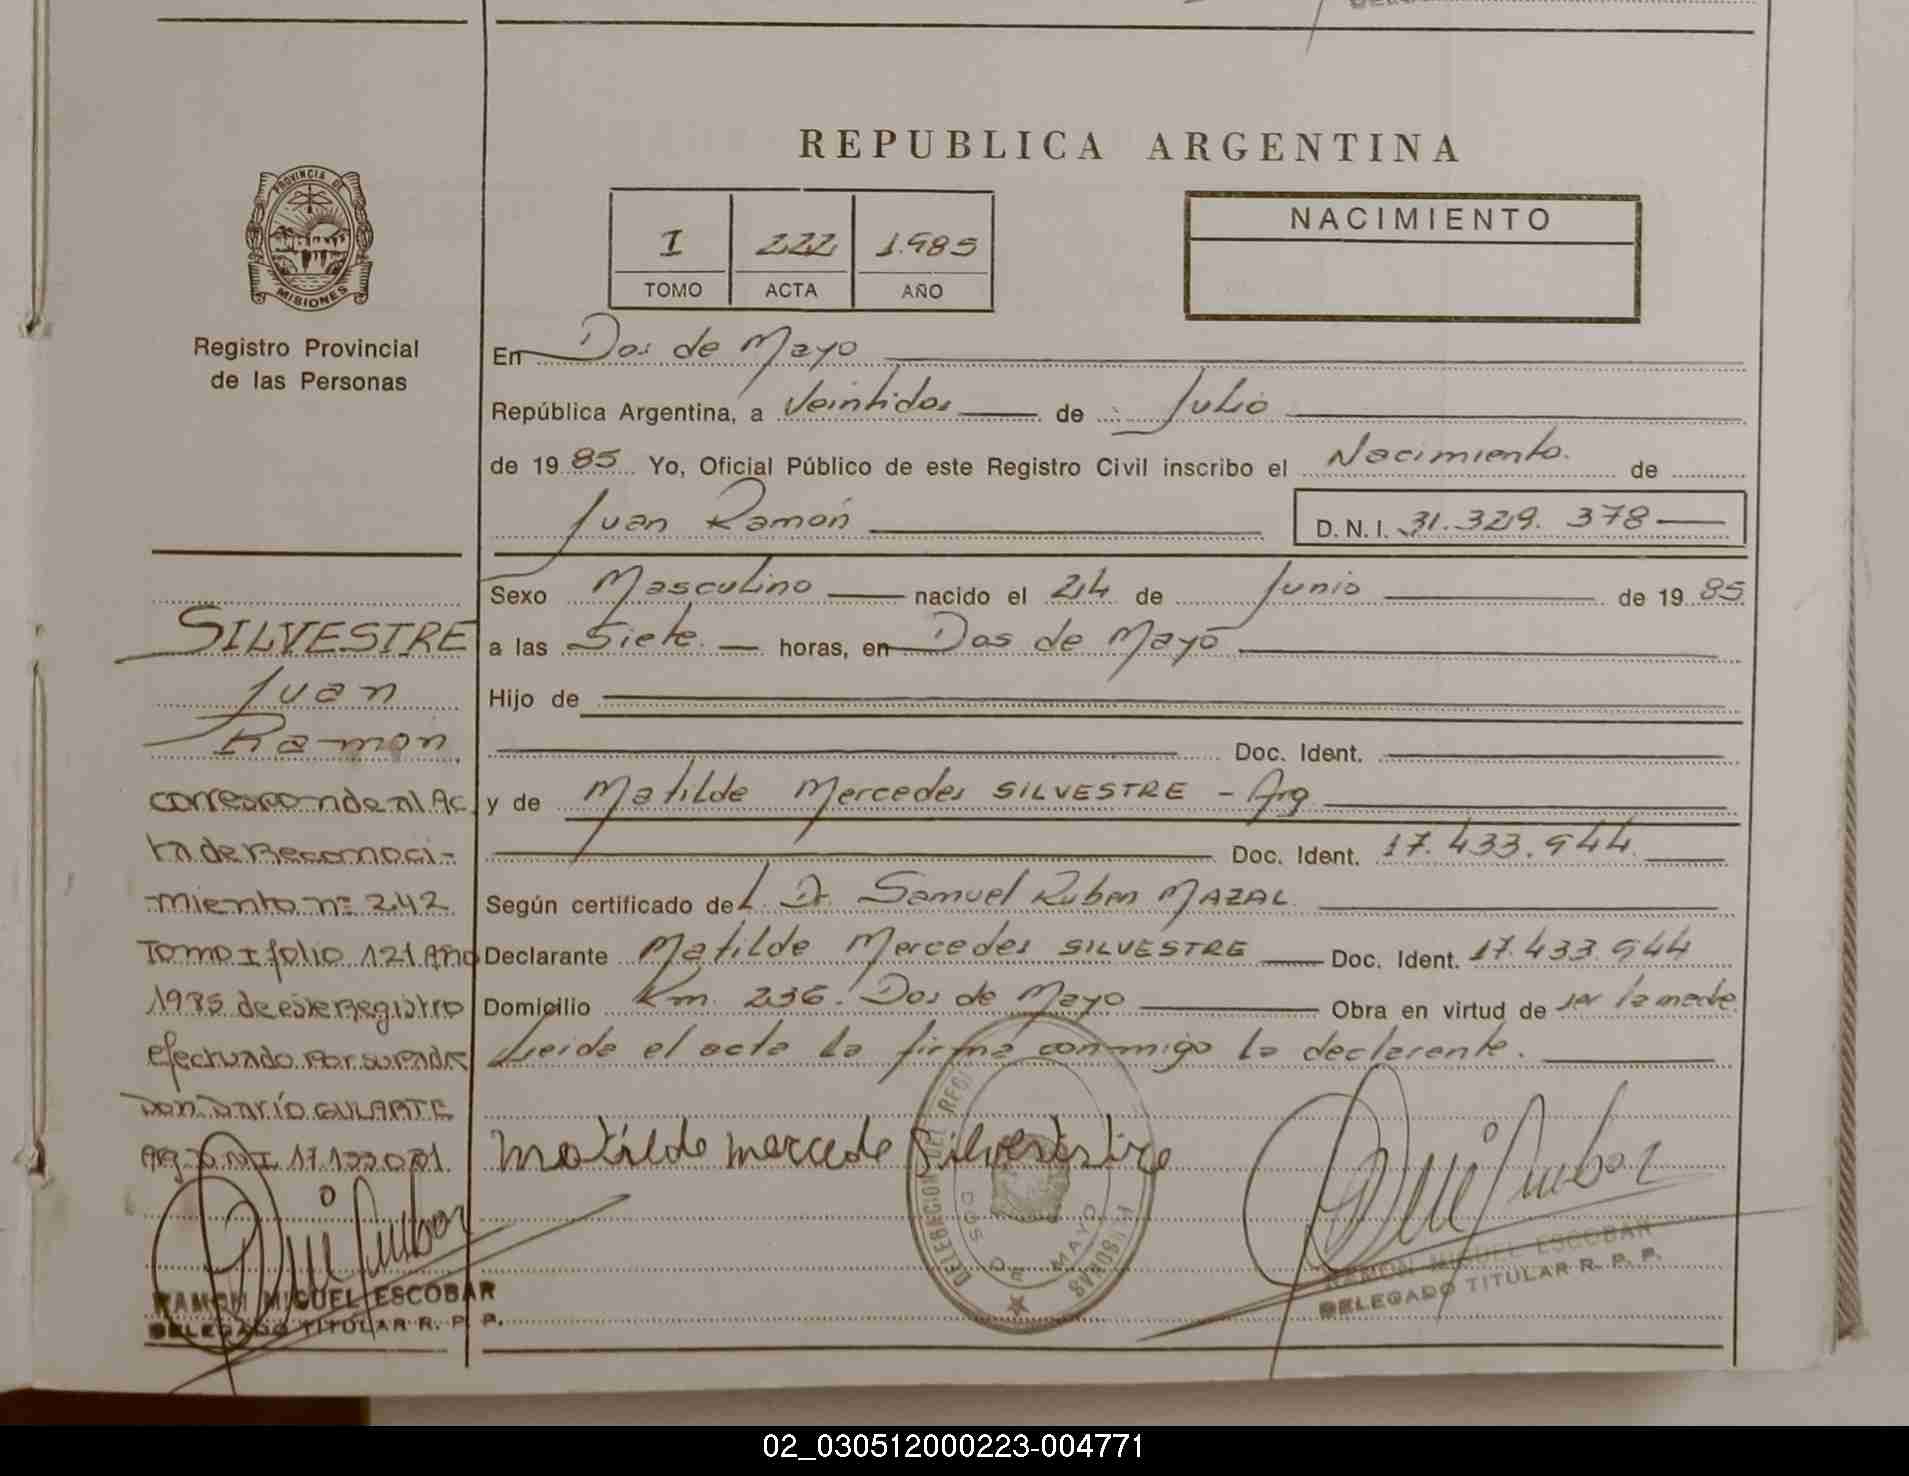 REPUBLICA ARGENTINA
PROVINCIA DE
MISIONES
Registro Provincial
de las Personas
I 222 1.985
TOMO ACTA AÑO
NACIMIENTO
En Dos de Mayo
República Argentina, a Veintidos de Julio
de 19 85 Yo, Oficial Público de este Registro Civil inscribo el Nacimiento de
Juan Ramón D.N.I. 31.329.378
Sexo Masculino nacido el 24 de Junio de 19 85
a las Siete horas, en Dos de Mayo
Hijo de
Doc. Ident.
y de Matilde Mercedes SILVESTRE - Arg
Doc. Ident. 17.433.944
Según certificado del Dr Samuel Ruben MAZAL
Declarante Matilde Mercedes SILVESTRE Doc. Ident. 17.433.944
Domicilio Km. 236. Dos de Mayo Obra en virtud de ser la madre
Leida el acta la firma conmigo la declarante.
Matilde mercede Silvestre
DELEGACION DEL REGI
DOS DE MAYO
RAMON MIGUEL ESCOBAR
DELEGADO TITULAR R. P. P.
SILVESTRE
Juan
Ramón
corresponde al Ac
ta de Reconoci-
miento nº 242
Tomo I folio 121 Año
1985 de este Registro
efectuado por su padre
Don Darío GULARTE
Arg D.N.I.
RAMON MIGUEL ESCOBAR
DELEGADO TITULAR R. P. P.
02_030512000223-004771